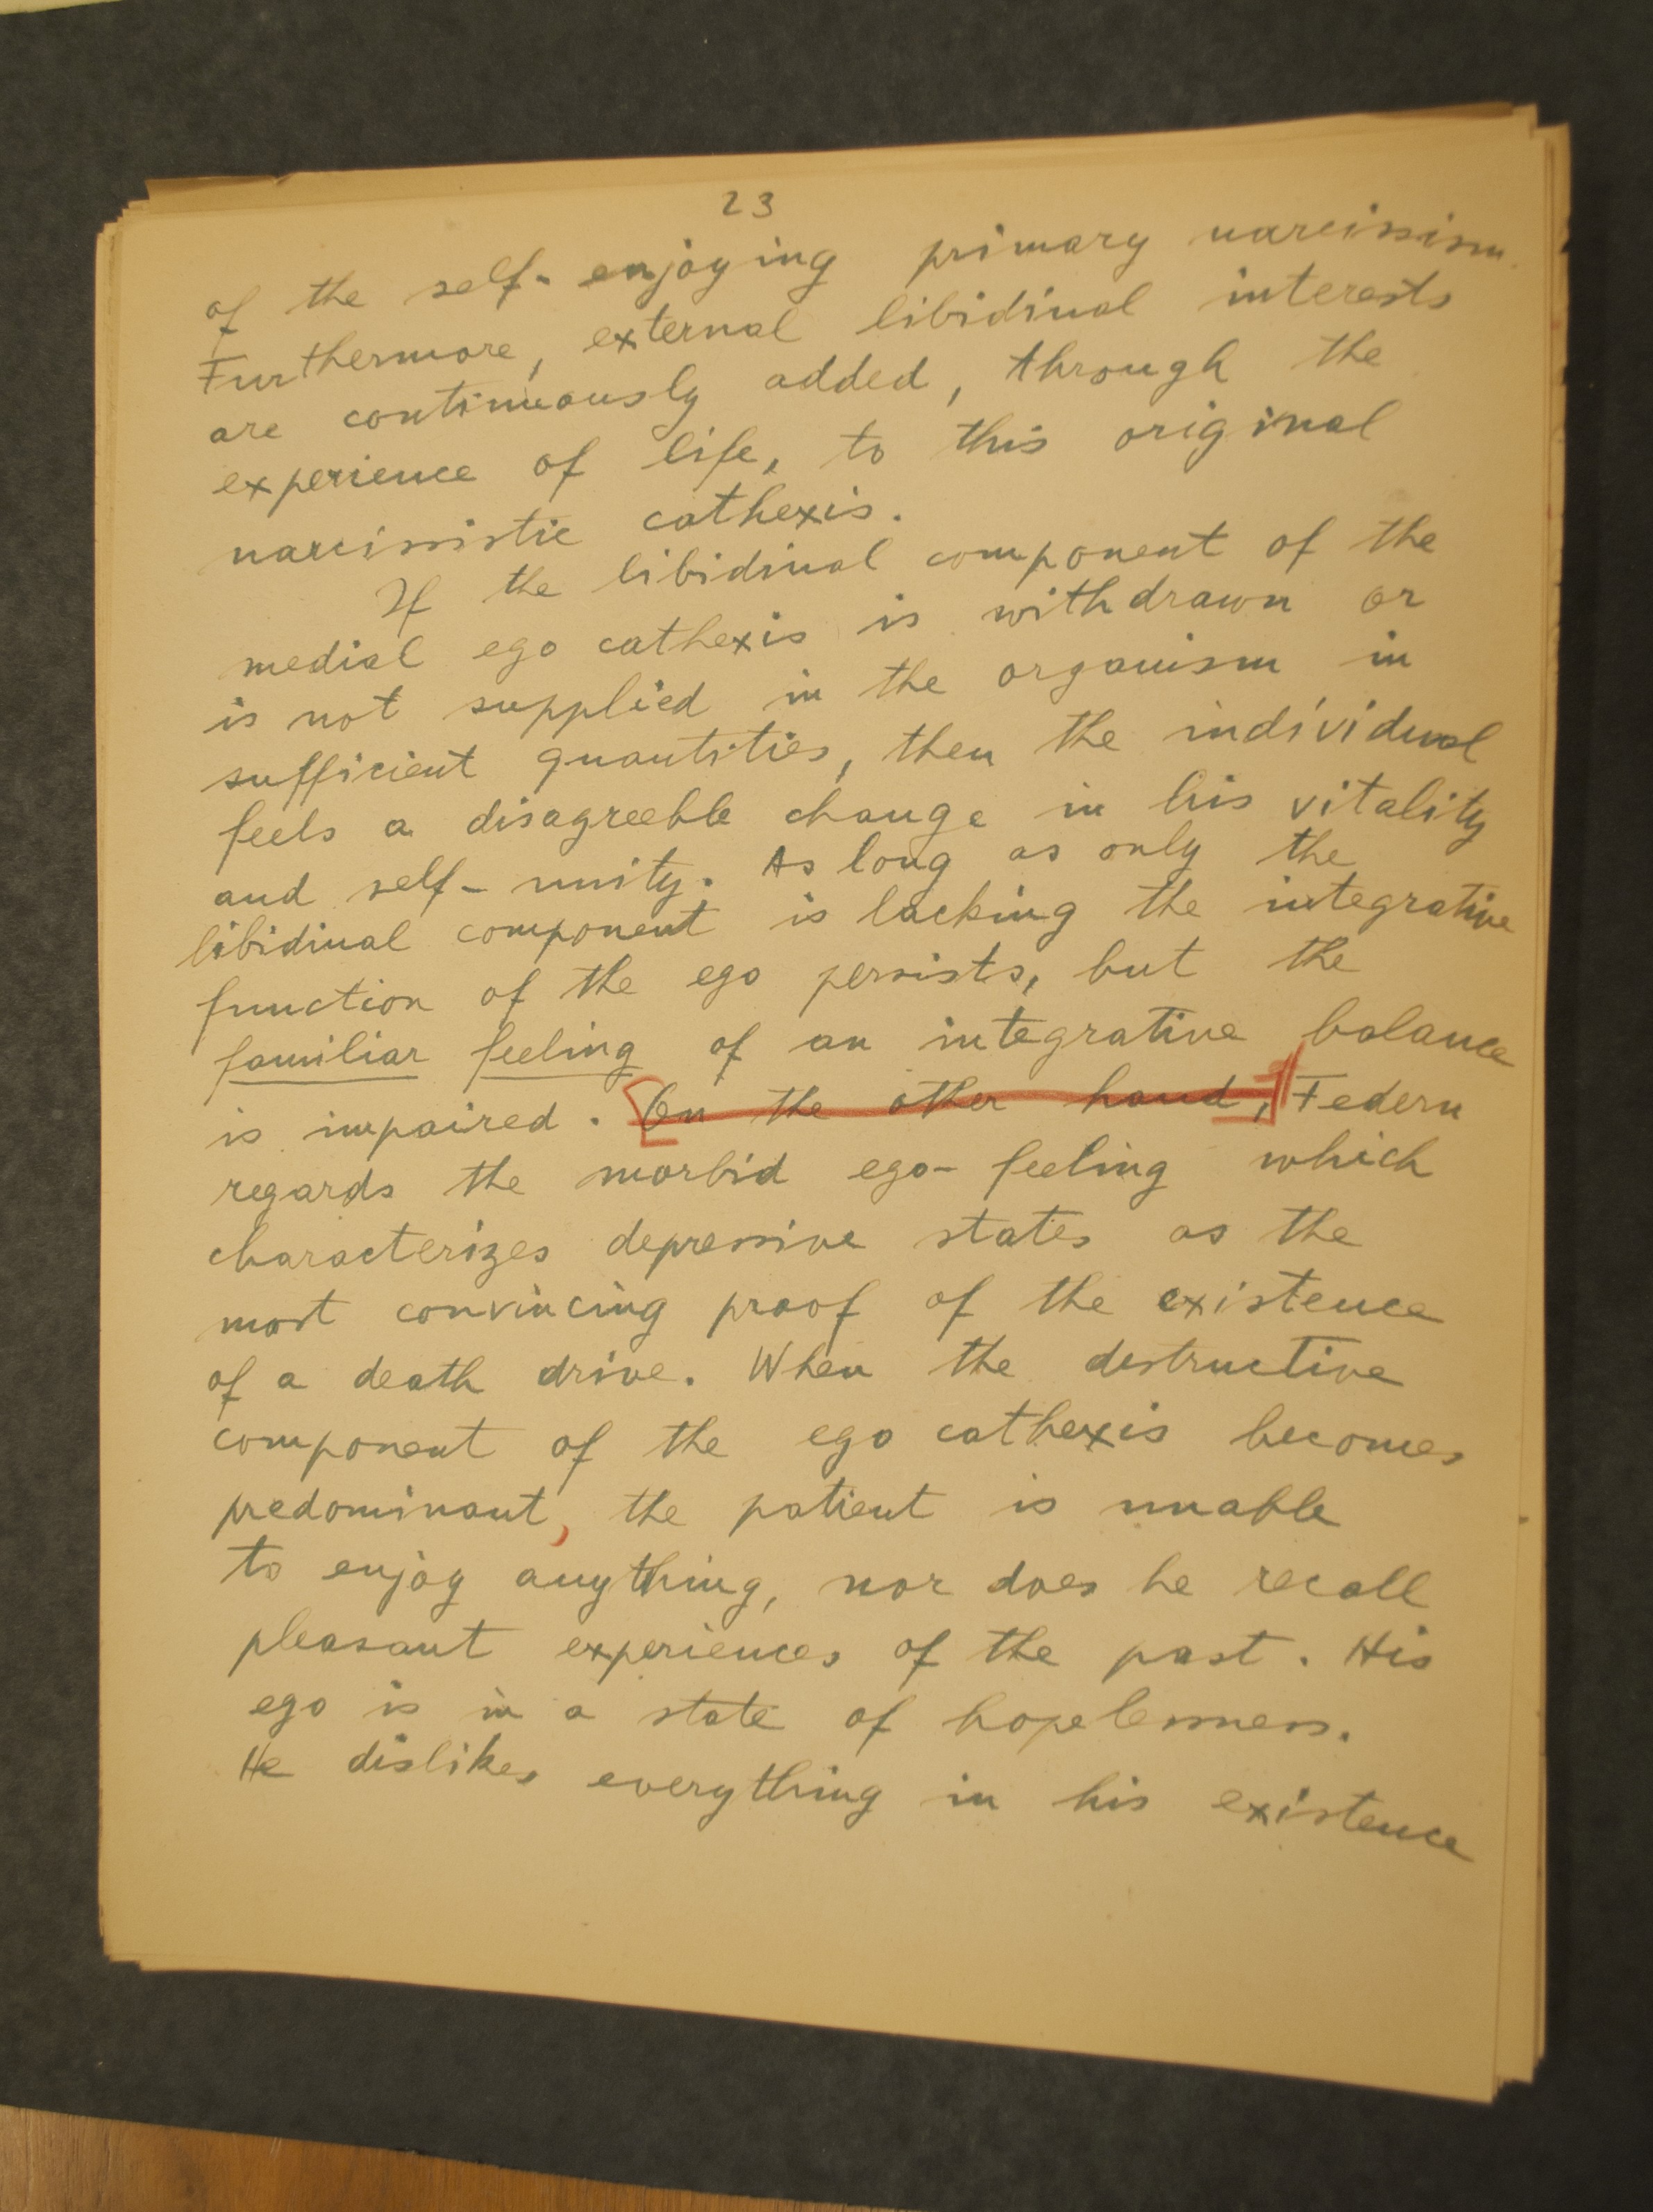 23
of the self-enjoying primary narcissism.
Furthermore, external libidinal interests
are continuously added, through the
experience of life, to this original
narcissistic cathexis.
If the libidinal component of the
medial ego cathexis is withdrawn or
is not supplied in the organism in
sufficient quantities, then the individual
feels a disagreeble change in his vitality
and self-unity. As long as only the
libidinal component is lacking the integrative
function of the ego persists, but the
familiar feeling of an integrative balance
is impaired. [On the other hand,] Federn
regards the morbid ego-feeling which
characterizes depressive states as the
most convincing proof of the existence
of a death drive. When the destructive
component of the ego cathexis becomes
predominant, the patient is unable
to enjoy anything, nor does he recall
pleasant experiences of the past. His
ego is in a state of hopelessness.
He dislikes everything in his existence